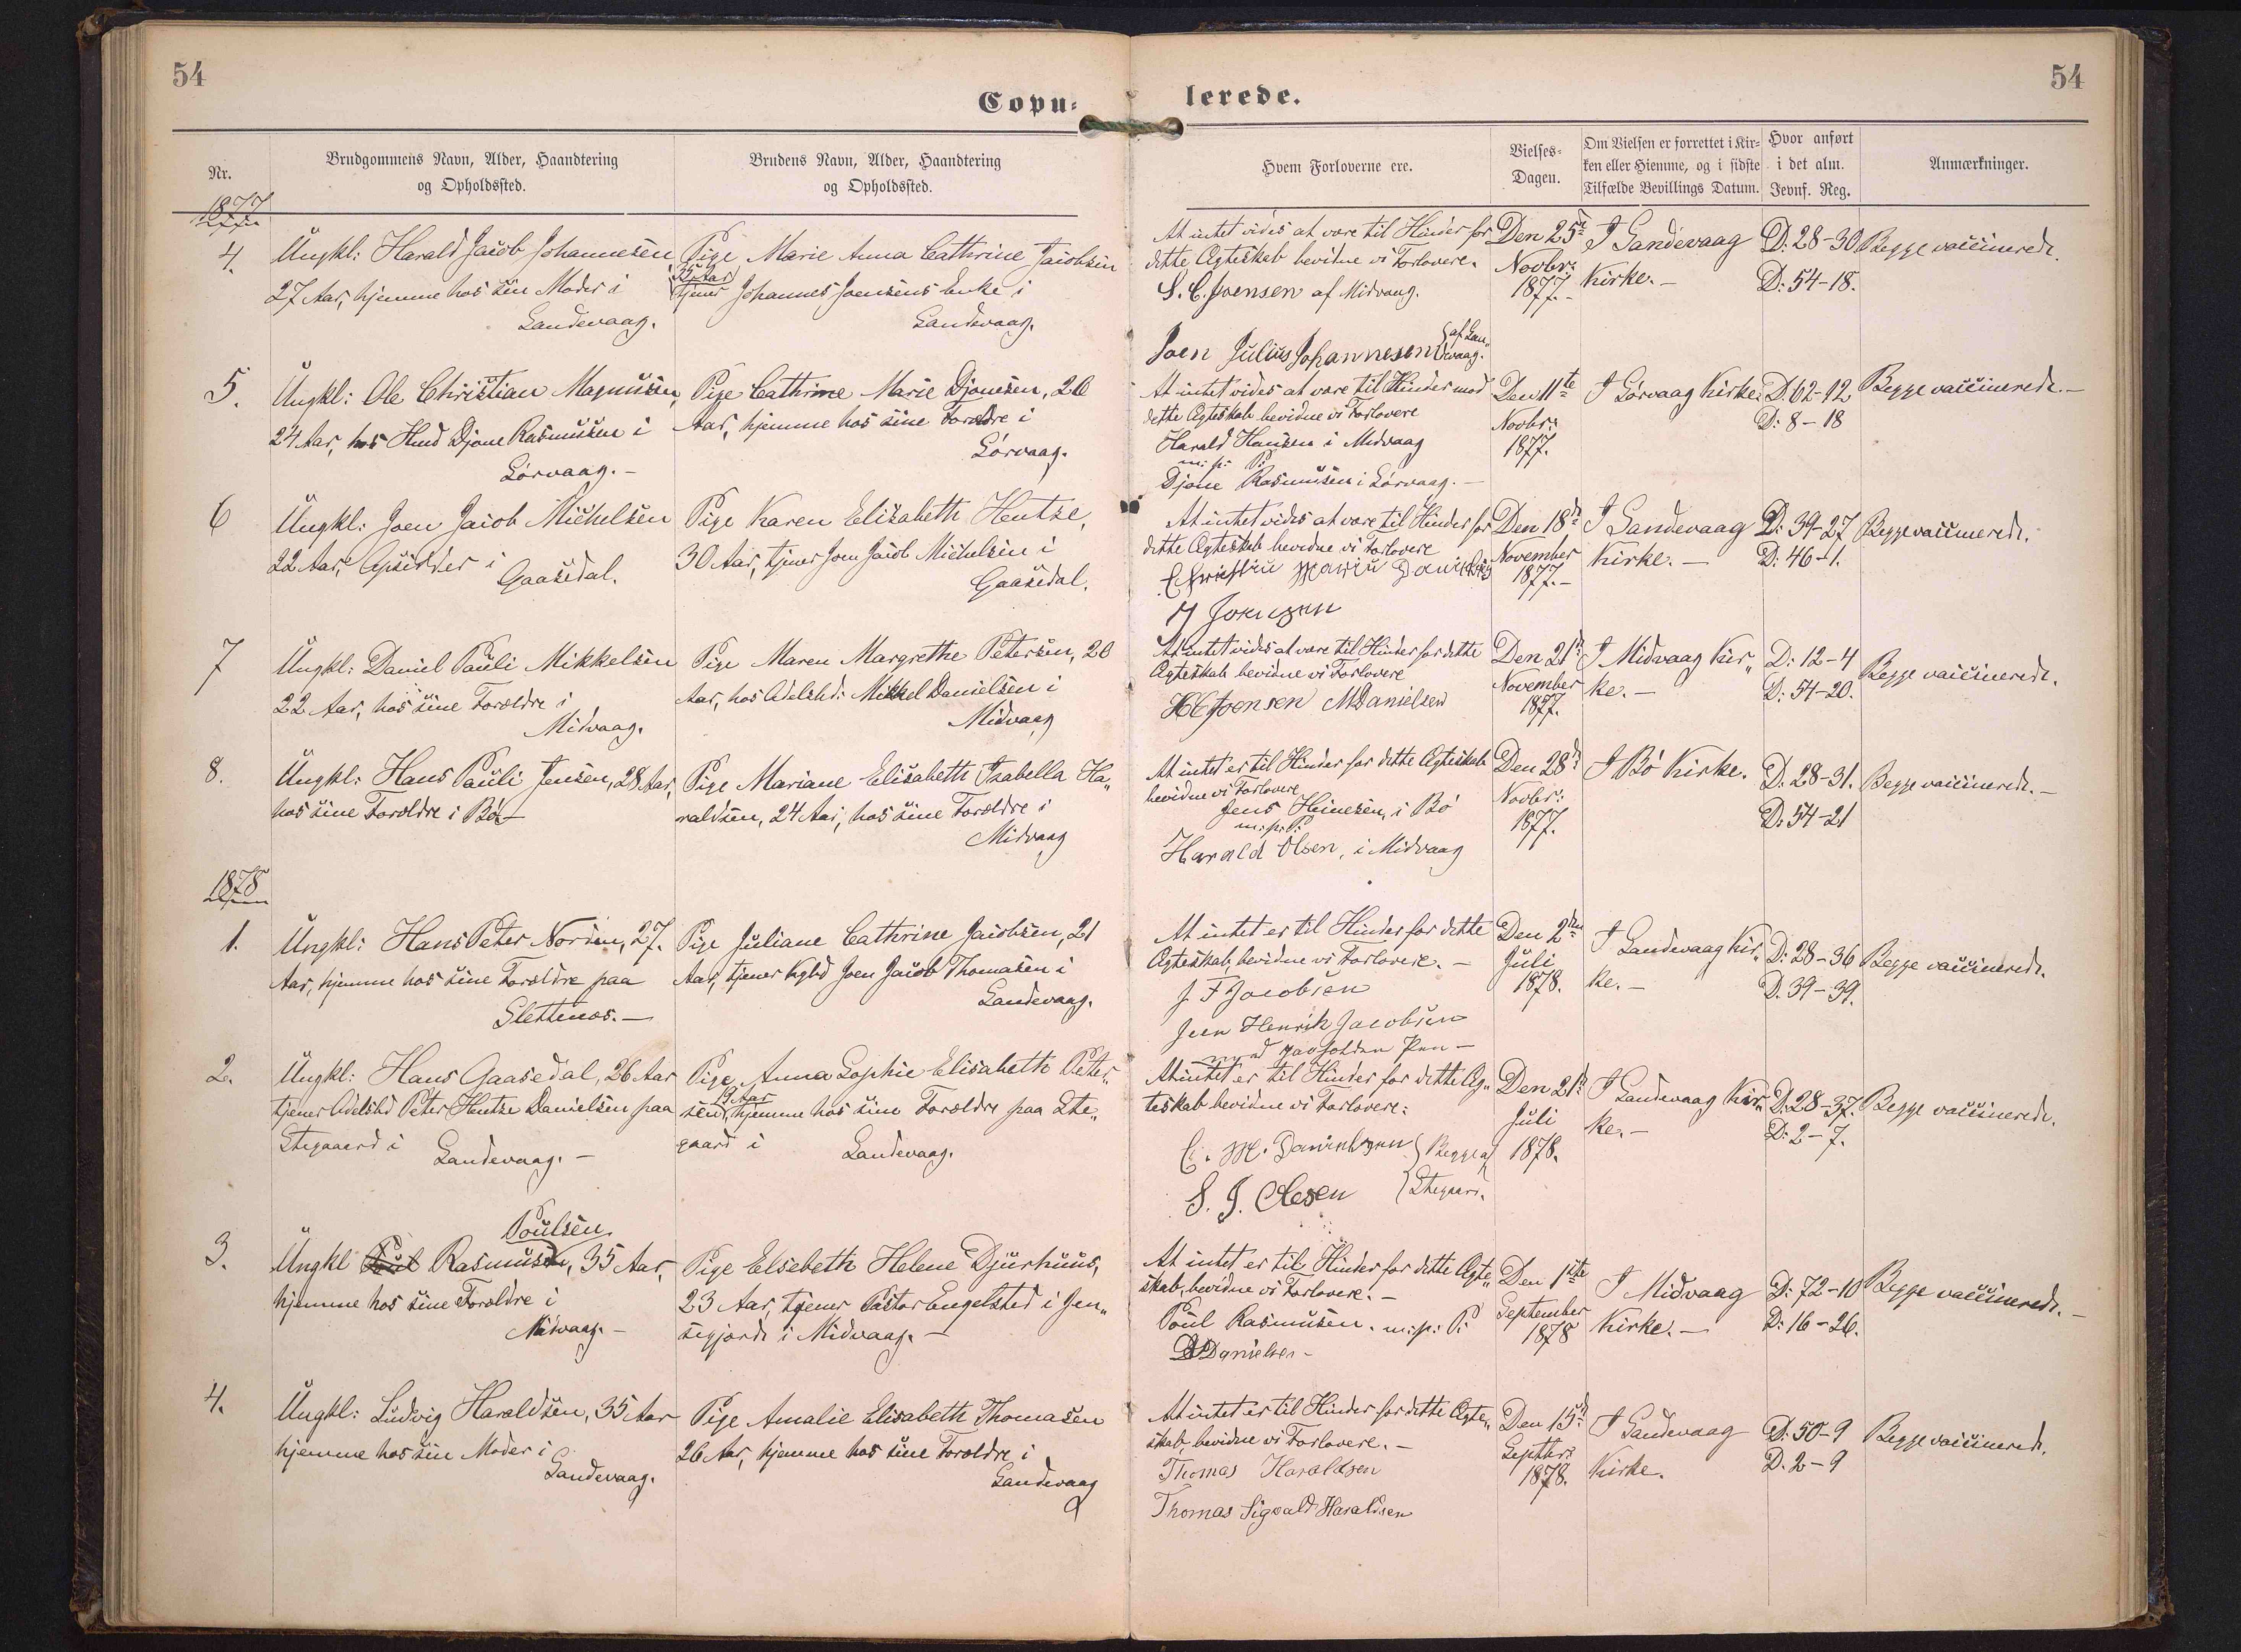 54
54
Copu-
lerede.
Nr.
Brudgommens Navn, Alder, Haandtering
og Opholdssted.
Brudens Navn, Alder, Haandtering
og Opholdssted.
Hvem Forloverne ere.
Vielses-
Dagen.
Om Vielsen er forrettet i Kir-
ken eller Hiemme, og i sidste
Tilfælde Bevillings Datum.
Hvor anført
i det alm.
Jevnf. Reg.
Anmærkninger.
1877.
4.
Ungkl: Harald Jacob Johannesen
27 Aar, hjemme hos sin Moder i
Sandevaag.
Pige Marie Anna Cathrine Jacobsen
35 Aar
tjener Johannes Joensens Enke i
Sandevaag.
At intet vides at være til Hinder for
dette Ægteskab bevidne vi Forlovere.
S. C. Joensen af Midvaag.
Joen Julius Johannesen af San„
devaag.
Den 25de
Novbr:
1877.-
I Sandevaag
Kirke.-
D: 28-30
D: 54-18.
Begge vaccinerede.
5.
Ungkl: Ole Christian Magnussen,
24 Aar, hos Hmd Djone Rasmussen i
Sørvaag.-
Pige Cathrine Marie Djonesen, 20
Aar, hjemme hos sine Forældre i
Sørvaag.
At intet vides at være til Hinder mod
dette Ægteskab bevidne vi Forlovere
Harald Hansen i Midvaag
m: p: P:
Djone Rasmussen i Sørvaag.-
Den 11te
Novbr:
1877.
I Sørvaag Kirke.
D: 62-12
D: 8-18
Begge vaccinerede.-
6
Ungkl: Joen Jacob Michelsen
22 Aar, Opsidder i
Gaasedal.
Pige Karen Elisabeth Hentze,
30 Aar, tjener Joen Jacob Michelsen i
Gaasedal.
At intet vides at være til Hinder for
dette Ægteskab bevidne vi Forlovere
Joensen
Den 18de
November
1877.-
I Sandevaag
Kirke.-
D: 39-27
D: 46-1.
Begge vaccinerede.
7
Ungkl: Daniel Pauli Mikkelsen
22 Aar, hos sine Forældre i
Midvaag.
Pige Maren Margrethe Petersen, 20
Aar, hos Odelsbd: Mikkel Danielsen i
Midvaag
At intet vides at være til Hinder for dette
Ægteskab bevidne vi Forlovere
Joensen MDanielsen
Den 21de
November
1877.
I Midvaag Kir„
ke.-
D: 12-4
D: 54-20.
Begge vaccinerede.
8.
Ungkl: Hans Pauli Jensen, 28 Aar,
hos sine Forældre i Bø.-
Pige Mariane Elisabeth Isabella Ha„
raldsen, 24 Aar, hos sine Forældre i
Midvaag
At intet er til Hinder for dette Ægteskab
bevidne vi Forlovere
Jens Heinesen, i Bø
m: p: P:
Harald Olsen, i Midvaag
Den 28de
Novbr:
1877.
I Bø Kirke.
D: 28-31.
D: 54-21
Begge vaccinerede.-
1878
1.
Ungkl: Hans Peter Norden, 27.
Aar, hjemme hos sine Forældre paa
Slettenæs.-
Pige Juliane Cathrine Jacobsen, 21
Aar, tjener Kgbd Joen Jacob Thomasen i
Sandevaag.
At intet er til Hinder for dette
Ægteskab, bevidne vi Forlovere.-
J. F Jacobsen
Joen Henrik Jacobsen
med paaholden Pen-
Den 2den
Juli
1878.
I Sandevaag Kir„
ke.-
D: 28-36
D: 39-39.
Begge vaccinerede.
2.
Ungkl: Hans Gaasedal, 26 Aar
tjener Odelsbd Peter Hentze Danielsen paa
Stegaard i Sandevaag.-
Pige Anna Sophie Elisabeth Peter„
19 Aar
sen, hjemme hos sine Forældre paa Ste„
gaard i Sandevaag.
At intet er til Hinder for dette Æg„
teskab bevidne vi Forlovere:
C. M. Danielsen Begge af
S. J. Olesen Stegaard.
Den 21de
Juli
1878.
I Sandevaag Kir„
ke.-
D: 28-37.
D: 2-7.
Begge vaccinerede.
3.
Poulsen
Ungkl Poul Rasmusen, 35 Aar,
hjemme hos sine Forældre i
Midvaag.-
Pige Elsebeth Helene Djurhuus,
23 Aar, tjener Pastor Engelsted i Jen„
segjorde i Midvaag.-
At intet er til Hinder for dette Ægte„
skab, bevidne vi Forlovere.-
Poul Rasmusen. m: p: P:
Danielsen-
Den 1ste
September
1878
I Midvaag
Kirke.-
D: 72-10
D: 16-26.
Begge vaccinerede.-
4.
Ungkl: Ludvig Haraldsen, 35 Aar
hjemme hos sin Moder i
Sandevaag.
Pige Amalie Elisabeth Thomasen
26 Aar, hjemme hos sine Forældre i
Sandevaag
At intet er til Hinder for dette Ægte„
skab, bevidne vi Forlovere.-
Thomas Haraldsen
Thomas Sigvald Haraldsen
Den 15de
Septbr:
1878.
I Sandevaag
Kirke.
D: 50-9
D: 2-9
Begge vaccinerede.